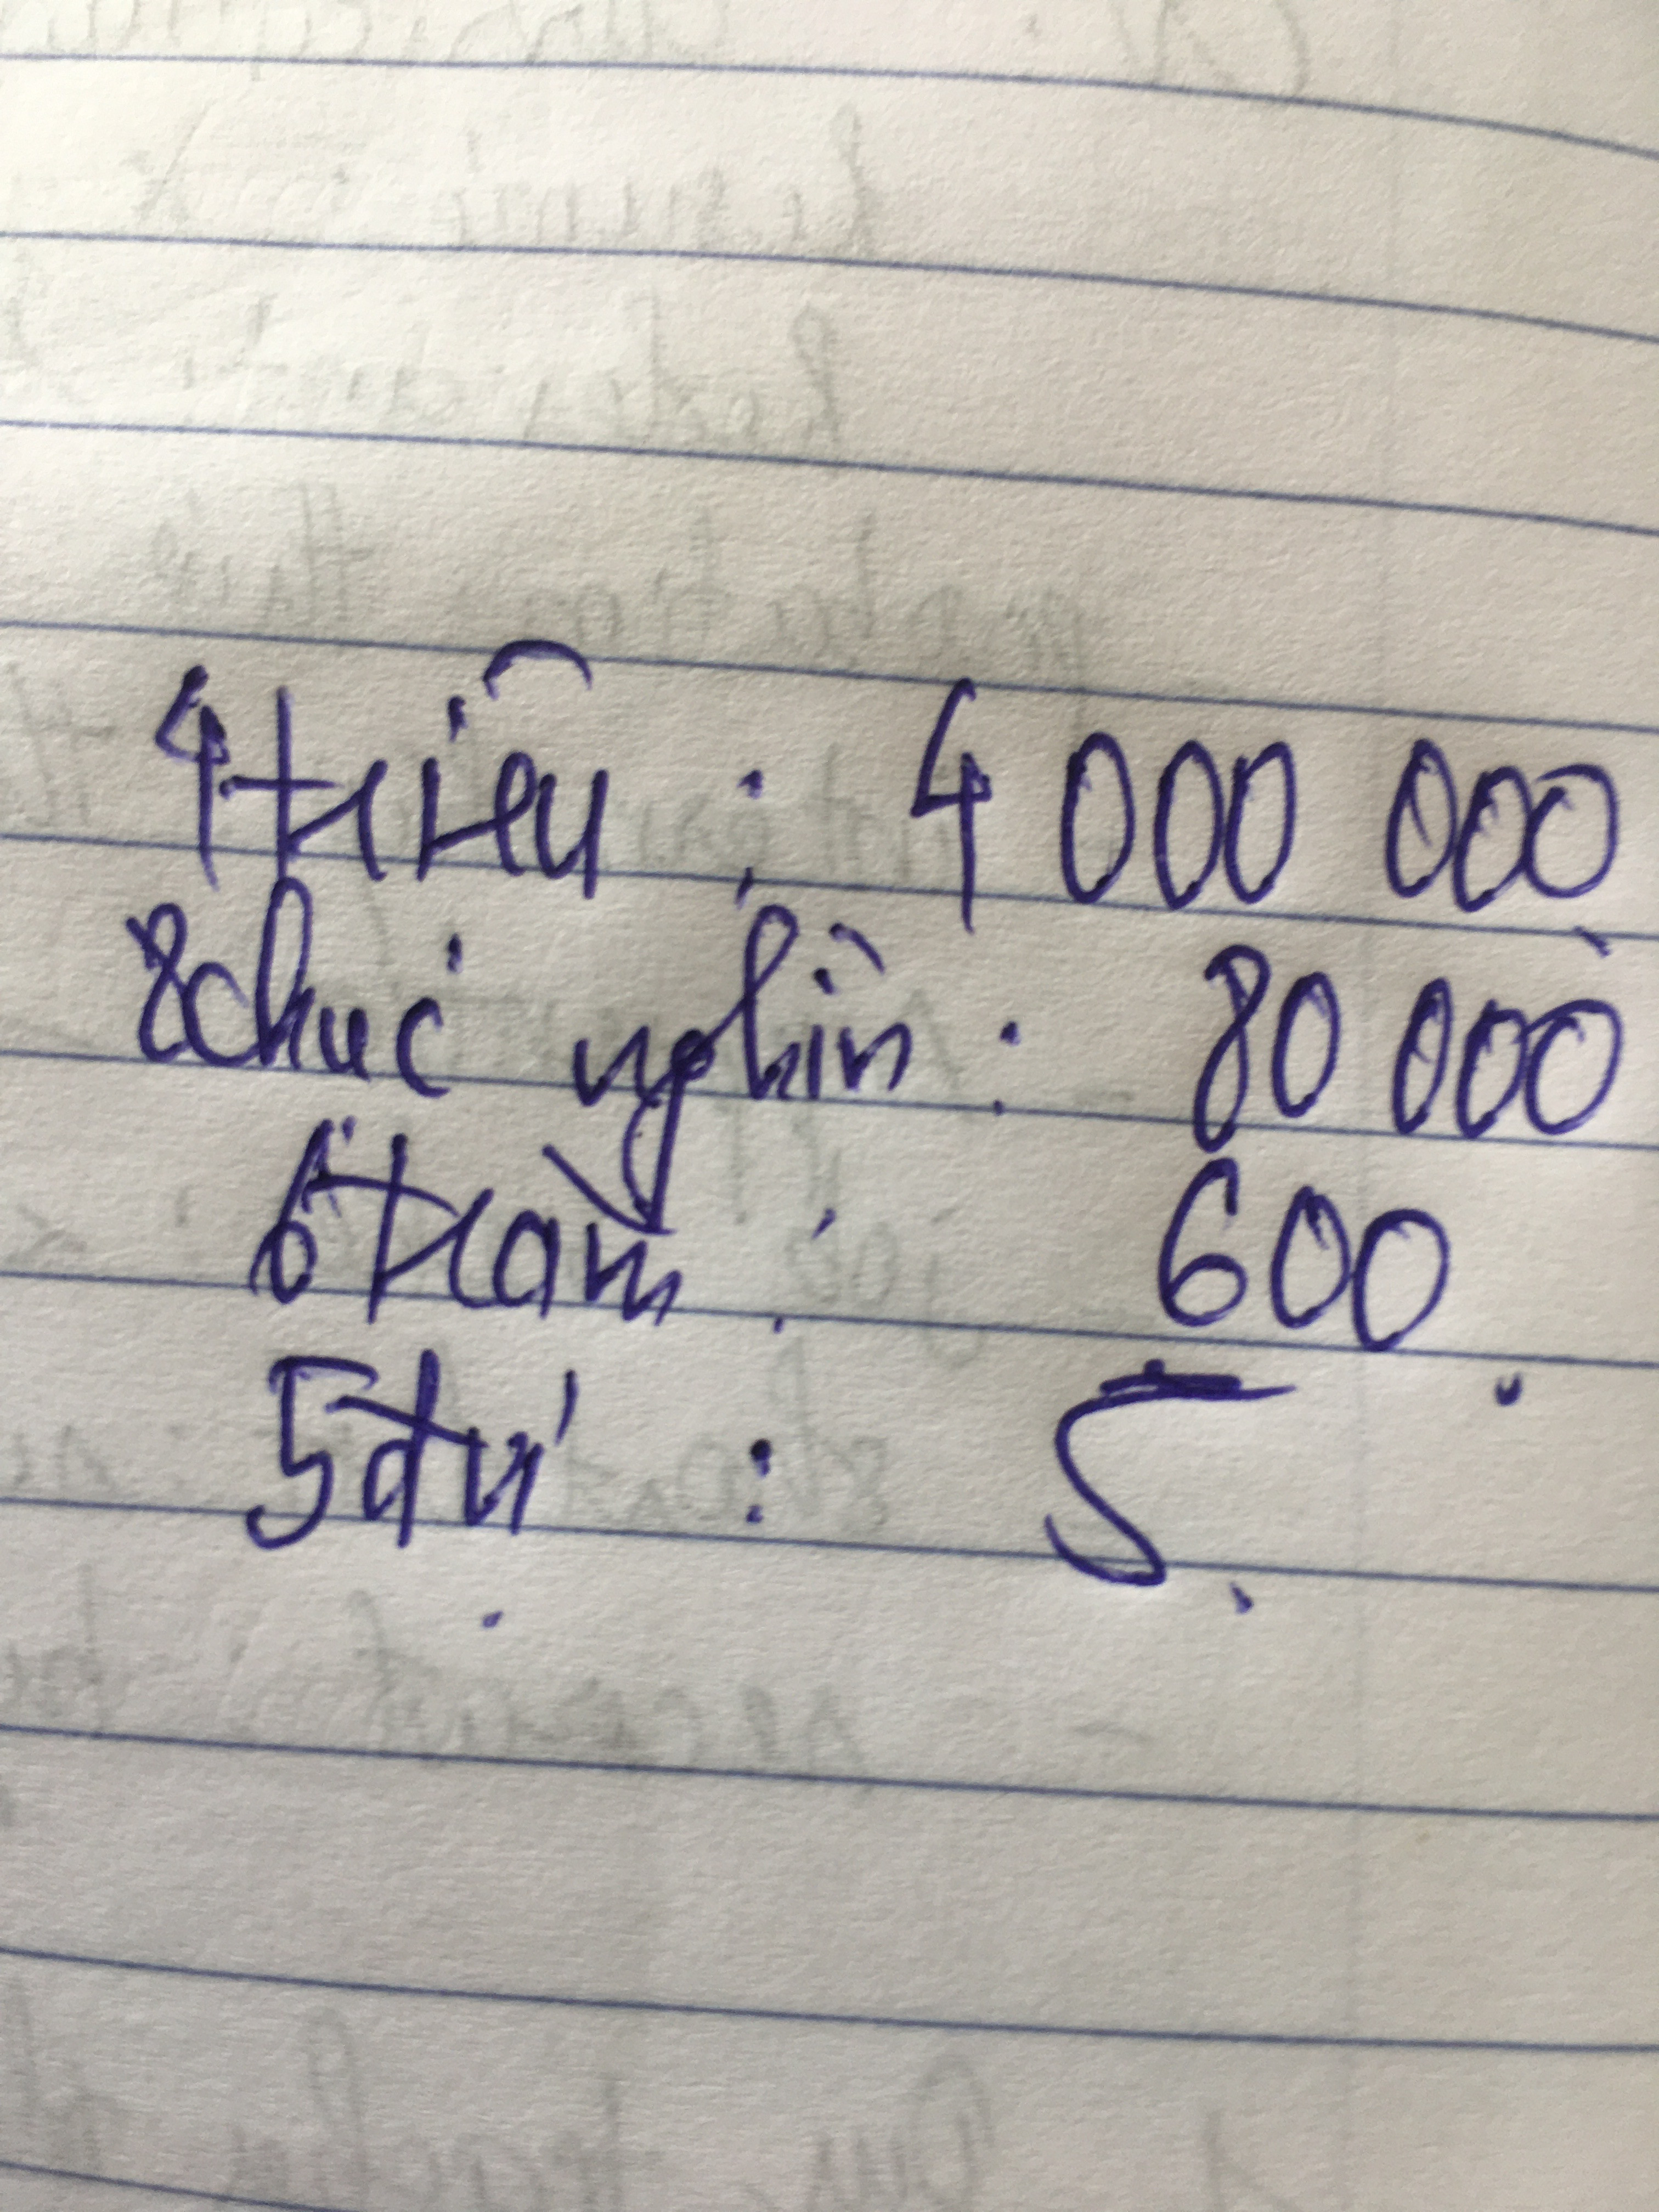 4 triêu : 4 000 000
8 chuc nghìn : 80 000
6 trăm : 600
5 đvi : 5